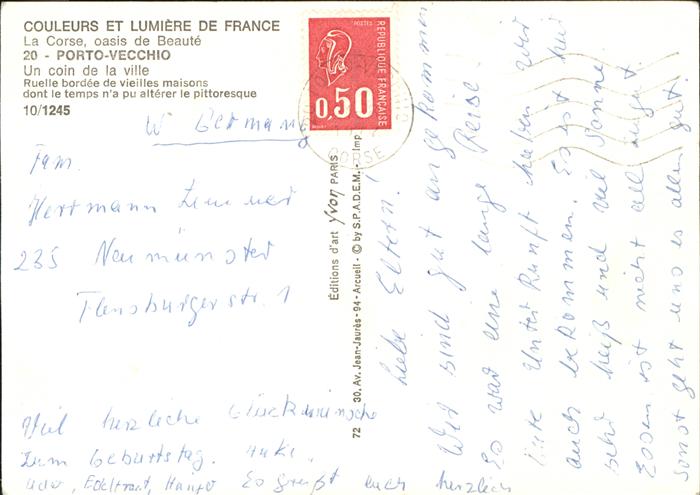 COULEURS ET LUMIÈRE DE FRANCE
La Corse, oasis de Beauté
20 - PORTO-VECCHIO
Un coin de la ville
Ruelle bordée de vieilles maisons
dont le temps n'a pu altérer le pittoresque
10/1245
POSTES
REPUBLIQUE FRANÇAISE
0,50
CORSE
W Germany
Fam.
Herrmann
235 Neumünster
Flensburgerstr. 1
Editions d'art Yvon PARIS
72 30, Av. Jean-Jaurès - 94 - Arcueil - © by S.P.A.D.E.M. - Imp.
Liebe Eltern!
Wir sind gut angekommen
Es war eine lange Reise.
Gute Unterkunft haben wir
auch bekommen. Es ist hier
sehr heiß und viel Sonne.
Essen ist nicht all zu gut.
sonst geht uns es allen gut.
Viel herzliche Glückwünsche
zum Geburtstag.
Edeltraut, Es grüßt euch herzlich